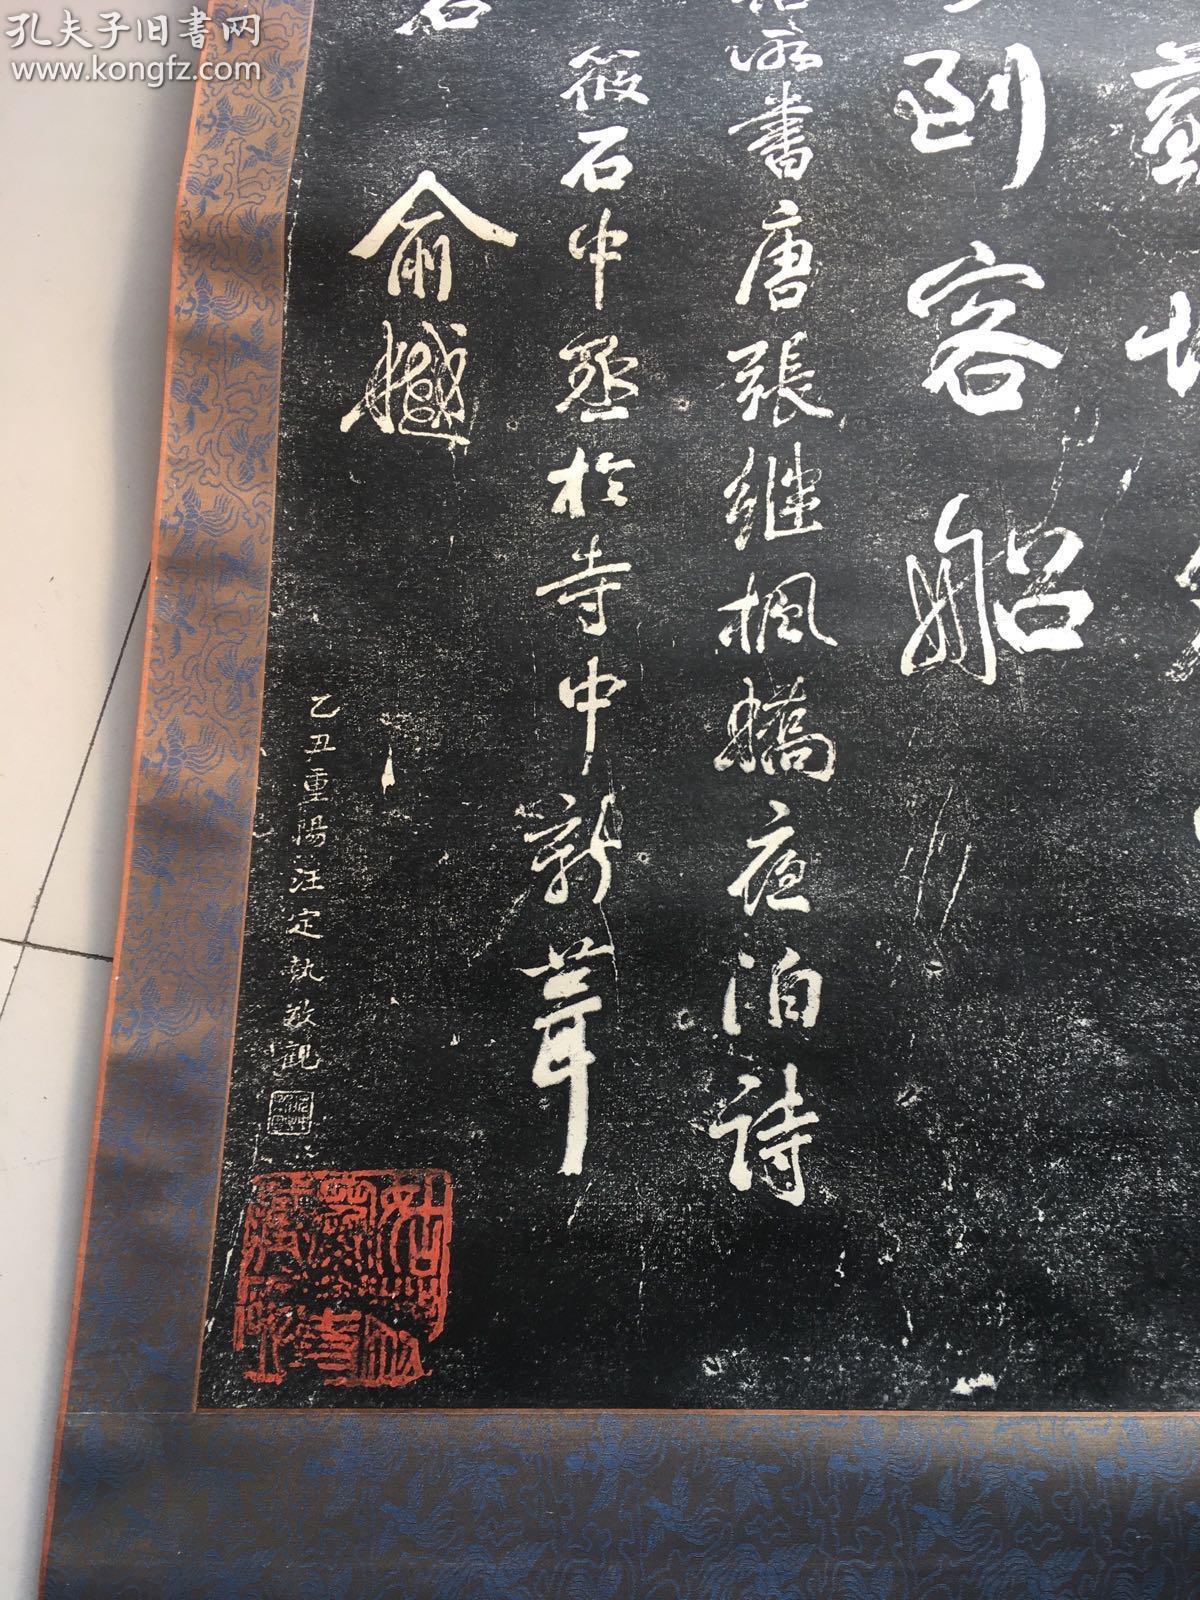 孔夫子旧书网
www.kongfz.com
到客船
詔所書唐張継楓橋夜泊詩
筱石中丞於寺中新葺
石
俞樾
乙丑重陽汪定執敬觀